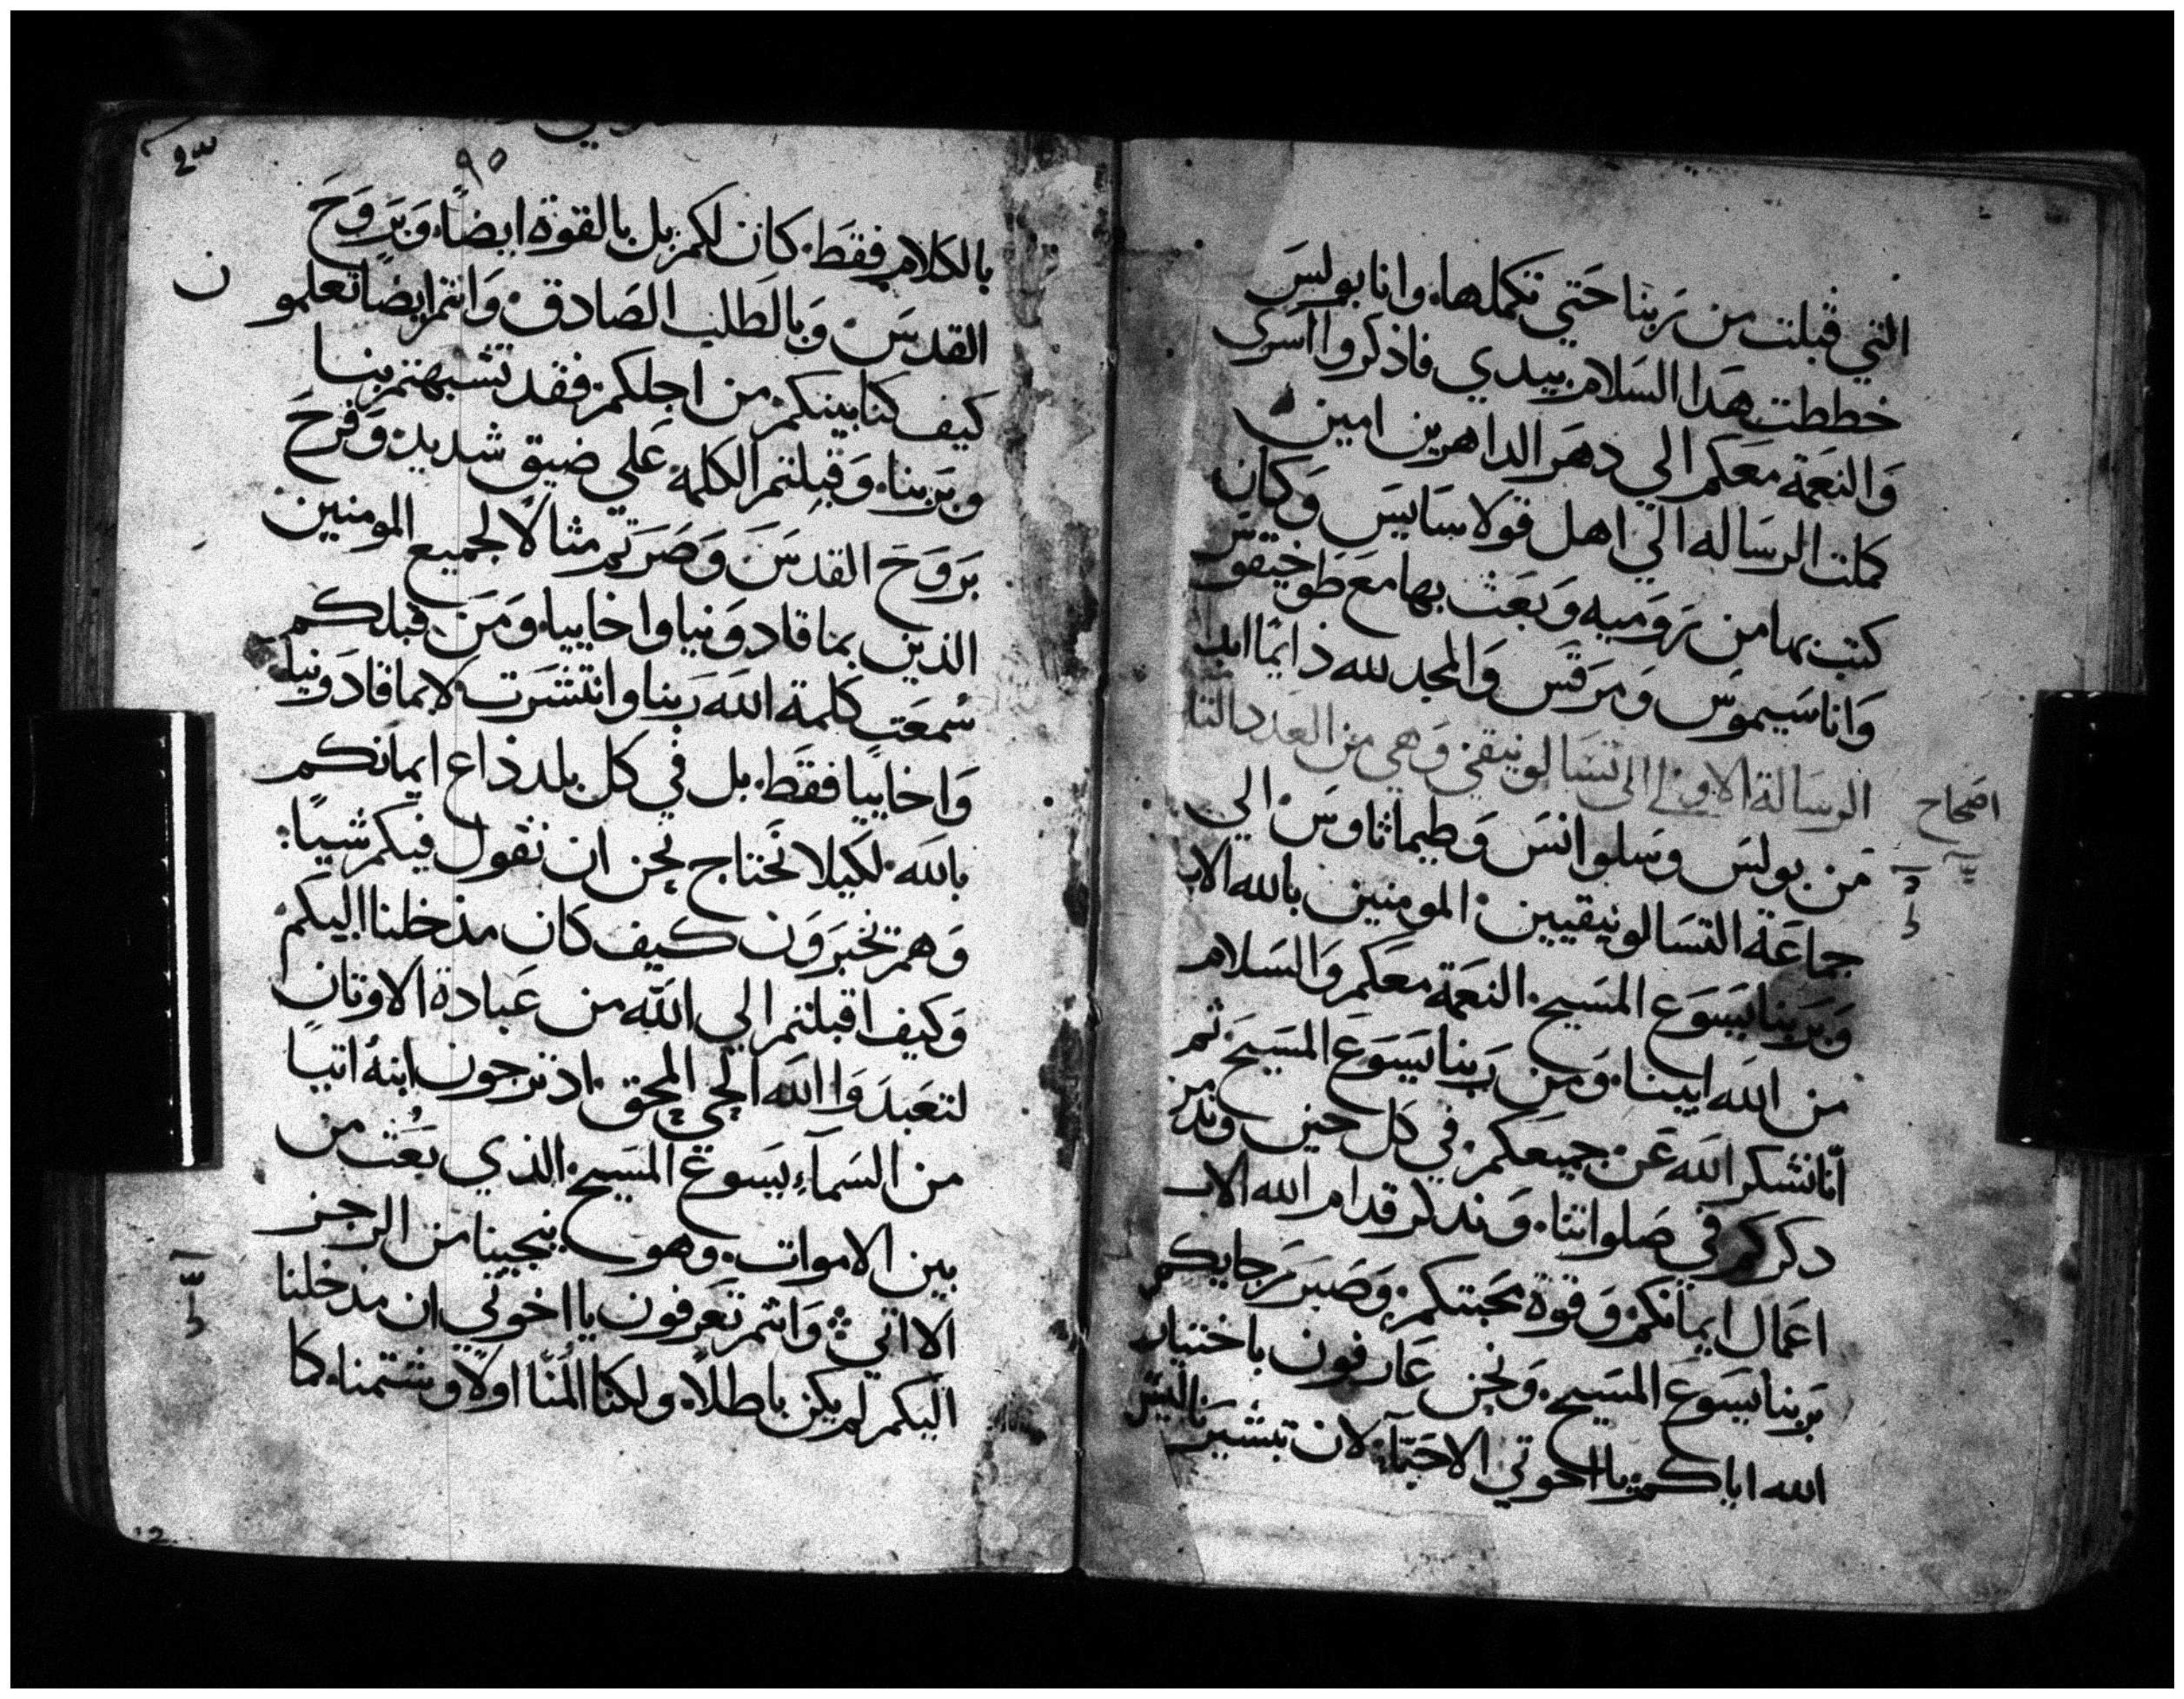 التي قبلت من ربنا حتي تكملها. وانا بولس
خططت هدا السلام بيدي فاذكروا اسري
والنعمة معكم الي دهر الداهرين امين
كملت الرساله الي اهل قولاسايس وكان
كتب بها من روميه وبعث بها مع طوخيقوس
واناسيموس ومرقس والمجد لله دايما ابدا
الرسالة الاولي الى تسالونيقي وهي من العدد
اصحاح
من بولس وسلوانس وطيماثاوس الي
جماعة التسالونيقيين المومنين بالله الاب
وبربنا يسوع المسيح النعمة معكم والسلام
من الله ابينا. ومن ربنا يسوع المسيح ثم
انا نشكر الله عن جميعكم في كل حين
دكركم في صلواتنا. وندكر قدام الله الاب
اعمال ايمانكم وقوة محبتكم وصبر رجايكم
بربنا يسوع المسيح. ونحن عارفون باختيار
الله اياكم يا اخوتي الاحبآء لان تبشيرنا ليس
٩٥
بالكلام فقط. كان لكم بل بالقوة ايضاً. وبروح
القدس وبالطلب الصادق وانتم ايضا تعلمو
ن
كيف كنا بينكم من اجلكم فقد تشبهتم بنا
وبربنا. وقبلتم الكلمة علي ضيق شديد وفرح
بروح القدس وصرتم مثالا لجميع المومنين
الذين بماقادونيا واخاييا. ومن قبلكم
سمعت كلمة الله ربنا وانتشرت لا بماقادونيا
واخاييا فقط. بل في كل بلد ذاع ايمانكم
بالله. لكيلا نحتاج نحن ان نقول فيكم شيا.
وهم تخبرون كيف كان مدخلنا اليكم
وكيف اقبلتم الي الله من عبادة الاوتان
لتعبدوا الله الحي المحق. اد ترجون ابنه اتيا
من السمآء يسوع المسيح الذي بعث من
بين الاموات. وهو ينجينا من الرجز
الاتي وانتم تعرفون يا اخوتي ان مدخلنا
اليكم لم يكن باطلاً. ولكنا المنا اولا وشتمنا. كما